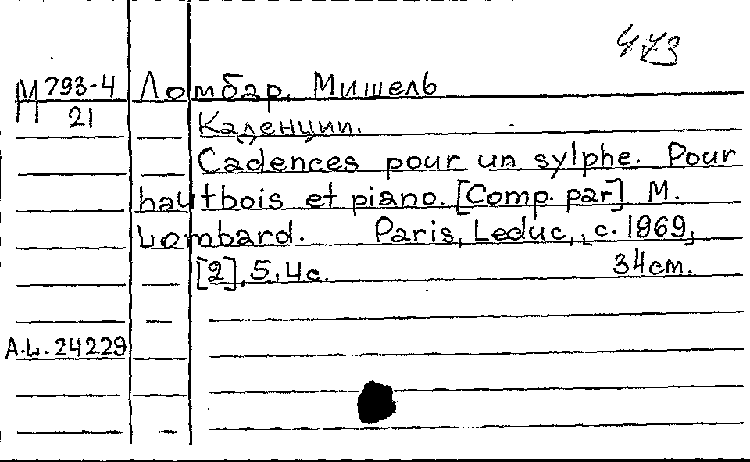 473
М 793-4 Ломбар, Мишель
21 Каденции.
Cadences pour un sylphe. Pour
hautbois et piano. [Comp. par] M.
Lombard. Paris, Leduc, c. 1969,
[2], 5, 4 с. 34 см.
A.L. 24229